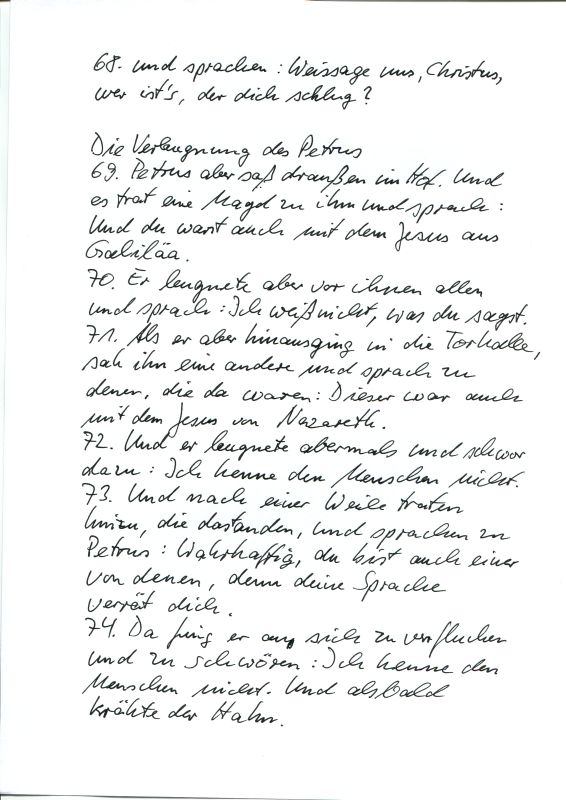 68. und sprachen: Weissage uns, Christus,
wer ist's, der dich schlug?
Die Verleugnung des Petrus
69. Petrus aber saß draußen im Hof. Und
es trat eine Magd zu ihm und sprach:
Und du warst auch mit dem Jesus aus
Galiläa.
70. Er leugnete aber vor ihnen allen
und sprach: Ich weiß nicht, was du sagst.
71. Als er aber hinausging in die Torhalle,
sah ihn eine andere und sprach zu
denen, die da waren: Dieser war auch
mit dem Jesus von Nazareth.
72. Und er leugnete abermals und schwor
dazu: Ich kenne den Menschen nicht.
73. Und nach einer Weile traten
hinzu, die dastanden, und sprachen zu
Petrus: Wahrhaftig, du bist auch einer
von denen, denn deine Sprache
verrät dich.
74. Da fing er an, sich zu verfluchen
und zu schwören: Ich kenne den
Menschen nicht. Und alsbald
krähte der Hahn.